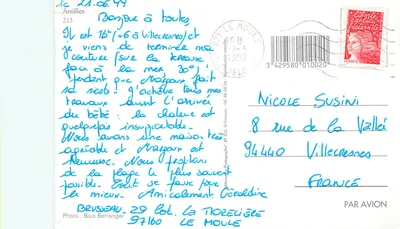 Antilles
213
le 21.06.99
Bonjour à toutes
Il est 16h (-6 à Villecresnes) et
je viens de terminer ma
couture (sur la terrasse
face à la mer 30°)
Pendant que Margaux fait
sa sieste ! J'achève tous mes
travaux avant l'arrivée
du bébé : la chaleur est
quelquefois insupportable.
Nous avons une maison très
agréable et Margaux et
Nous profitons
de la plage le plus souvent
possible. Tout se passe pour
le mieux. Amicalement Géraldine
BRUSSEAU. 29 Lot. LA TORELIÈRE
97160 LE MOULE
Photo : Bois Berranger
LE MOULE
3 429580 010020
LIBERTÉ ÉGALITÉ FRATERNITÉ
NICOLE SUSINI
8 rue de la Vallée
94440 Villecresnes
FRANCE
PAR AVION